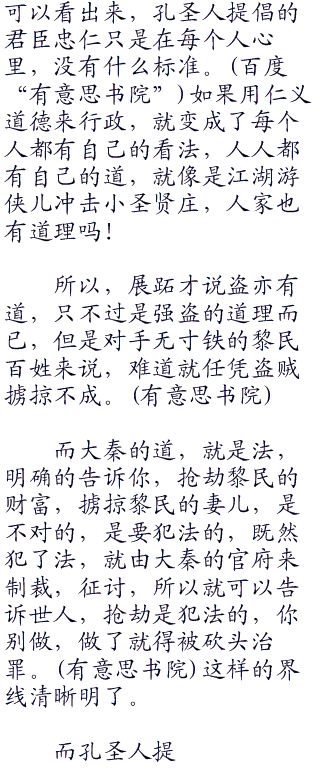 可以看出来，孔圣人提倡的
君臣忠仁只是在每个人心
里，没有什么标准。(百度
“有意思书院”)如果用仁义
道德来行政，就变成了每个
人都有自己的看法，人人都
有自己的道，就像是江湖游
侠儿冲击小圣贤庄，人家也
有道理吗！
所以，展跖才说盗亦有
道，只不过是强盗的道理而
已，但是对手无寸铁的黎民
百姓来说，难道就任凭盗贼
掳掠不成。(有意思书院)
而大秦的道，就是法，
明确的告诉你，抢劫黎民的
财富，掳掠黎民的妻儿，是
不对的，是要犯法的，既然
犯了法，就由大秦的官府来
制裁，征讨，所以就可以告
诉世人，抢劫是犯法的，你
别做，做了就得被砍头治
罪。(有意思书院)这样的界
线清晰明了。
而孔圣人提